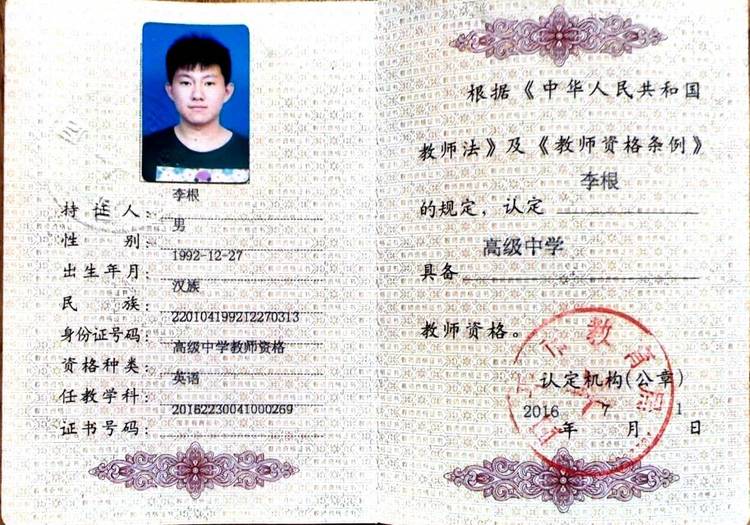 持证人： 李根
性别： 男
出生年月： 1992-12-27
民族： 汉族
身份证号码： 220104199212270313
资格种类： 高级中学教师资格
任教学科： 英语
证书号码： 20162230041000269
根据《中华人民共和国
教师法》及《教师资格条例》
的规定，认定 李根
具备 高级中学
教师资格。
教育局
认定机构(公章)
2016年 7月 1日